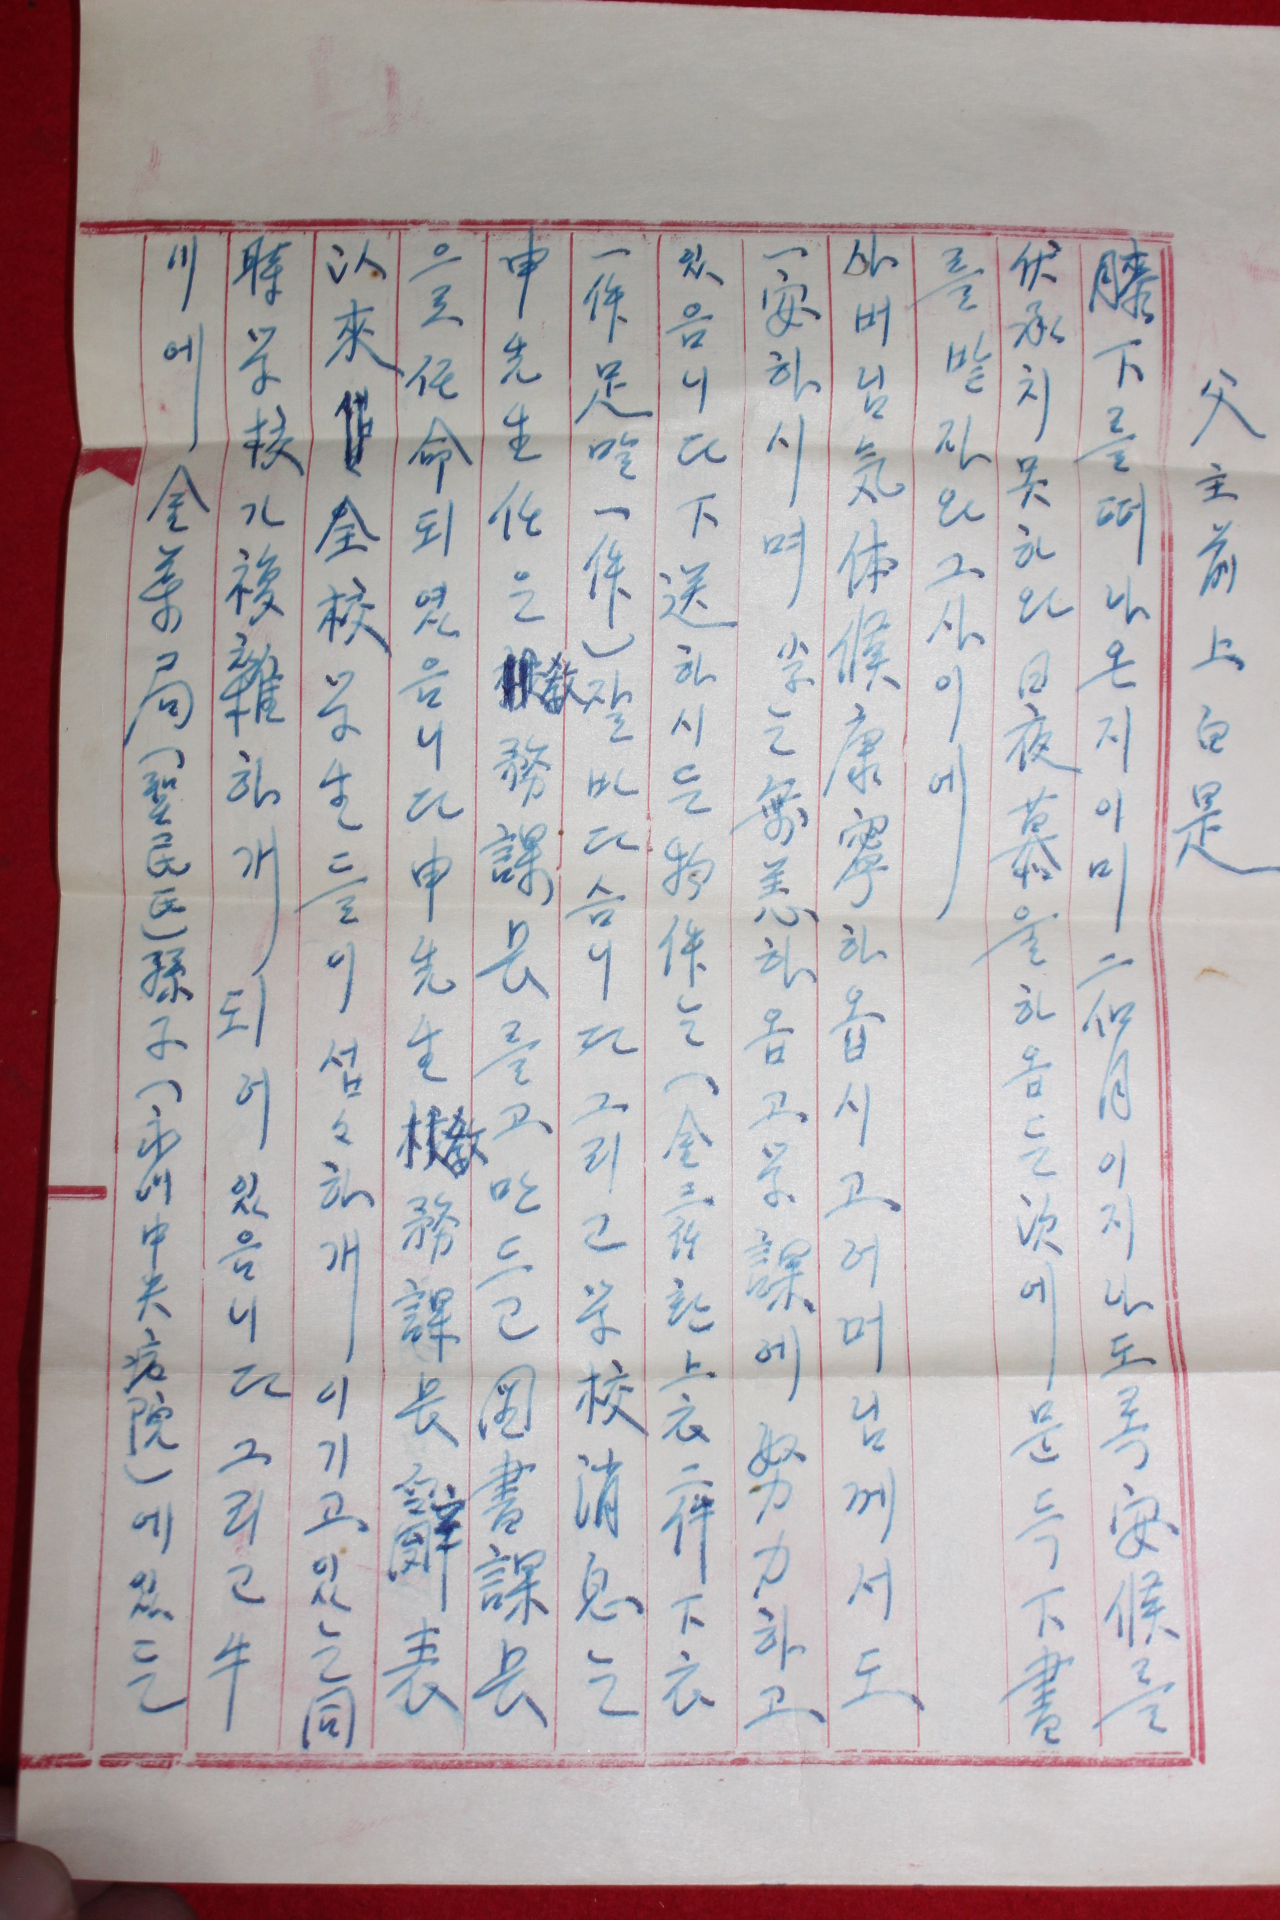 父主前上白是
膝下를떠나온지이미二個月이지나도록安候를
伏承치못하와日夜慕을하옴든次에문득下書
를받자와그사이에
아버님氣体候康寧하옵시고어머님께서도
一安하시며 子는無恙하옴고学課에努力하고
있음니다下送하시든物件는(金 한上衣二件下衣
一件足말一件)잘받다슴니다그리고学校消息는
申先生任은教務課長를고만드고図書課長
으로任命되였음니다申先生教務課長辭表
以來全校学生들이섭々하개이기고있는同
時学校가複雜하개되어있음니다그리고牛
川에金薬局(聖民氏)孫子(永川中央病院)에있든